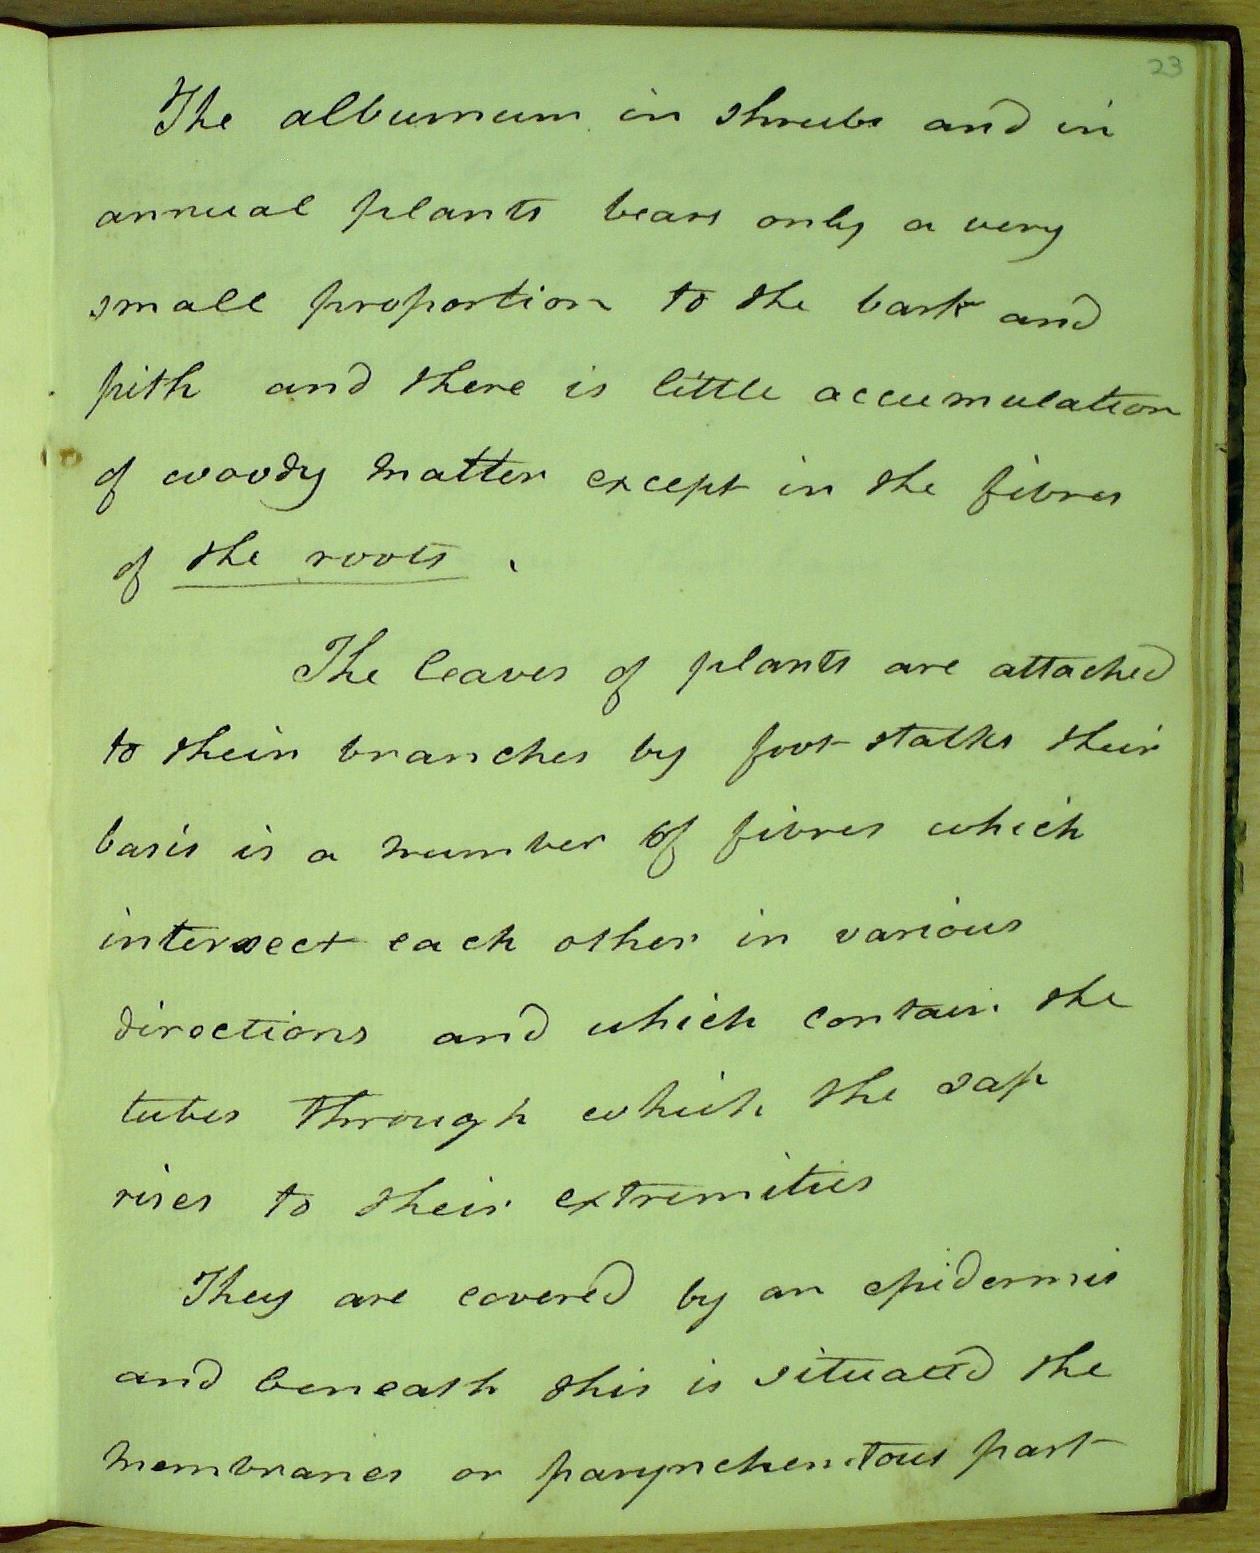 23
The alburnum in shrubs and in
annual plants bears only a very
small proportion to the bark and
pith and there is little accumulation
of woody matter except in the fibres
of the roots.
The leaves of plants are attached
to their branches by foot stalks their
basis is a number of fibres which
intersect each other in various
directions and which contain the
tubes through which the sap
rises to their extremities
They are covered by an epidermis
and beneath this is situated the
membranes or parynchemtous part